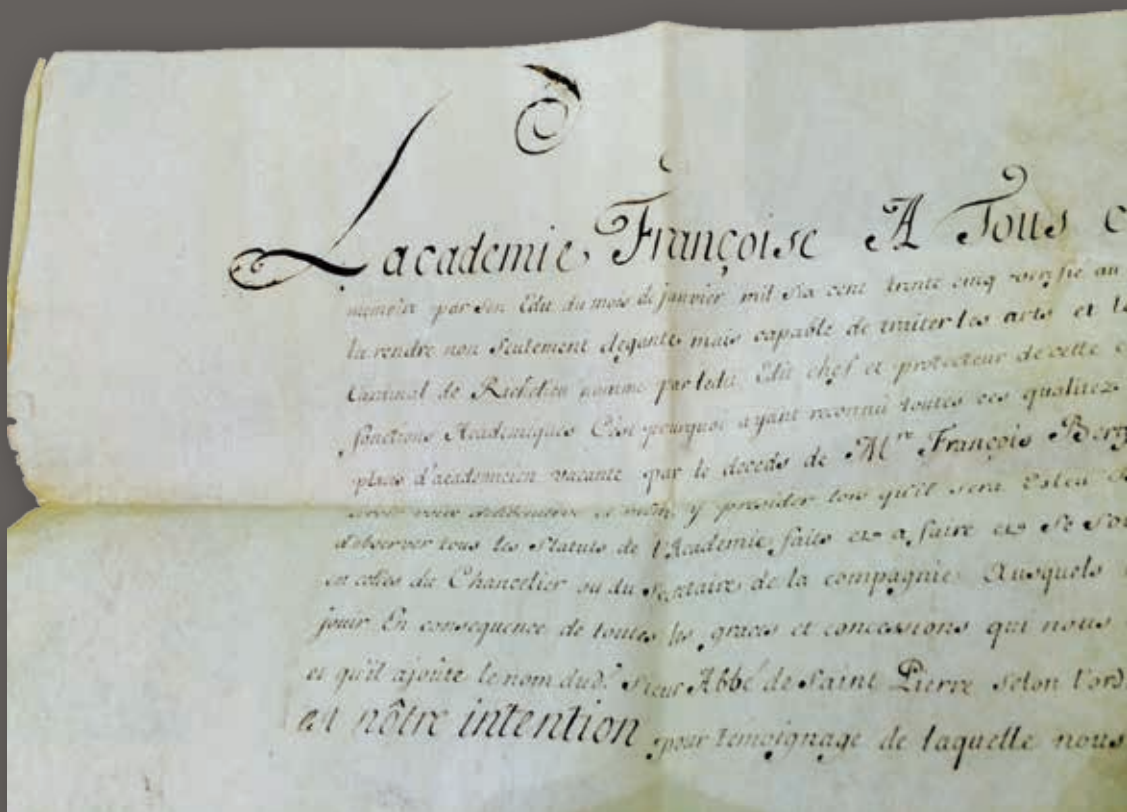 L'academie Françoise A Tous c
memoire par son Edit du mois de janvier mil six cent trente cinq verifie au
la rendre non seulement elegante mais capable de traiter les arts et le
Cardinal de Richelieu nomme par ledit Edit chef et protecteur de cette c
fonctions Academiques C'est pourquoi ayant reconnu toutes ces qualitez
place d'academicien vacante par le deceds de Mre François Berg
y presider lors qu'il sera Esleu
d'observer tous les Statuts de l'Academie faits et a faire et de se sou
en celles du Chancelier ou du Secretaire de la compagnie Ausquels
jouir En consequence de toutes les graces et concessions qui nous
et qu'il ajoûte le nom dud. Sieur Abbé de Saint Pierre selon l'ord
est nôtre intention pour temoignage de laquelle nous